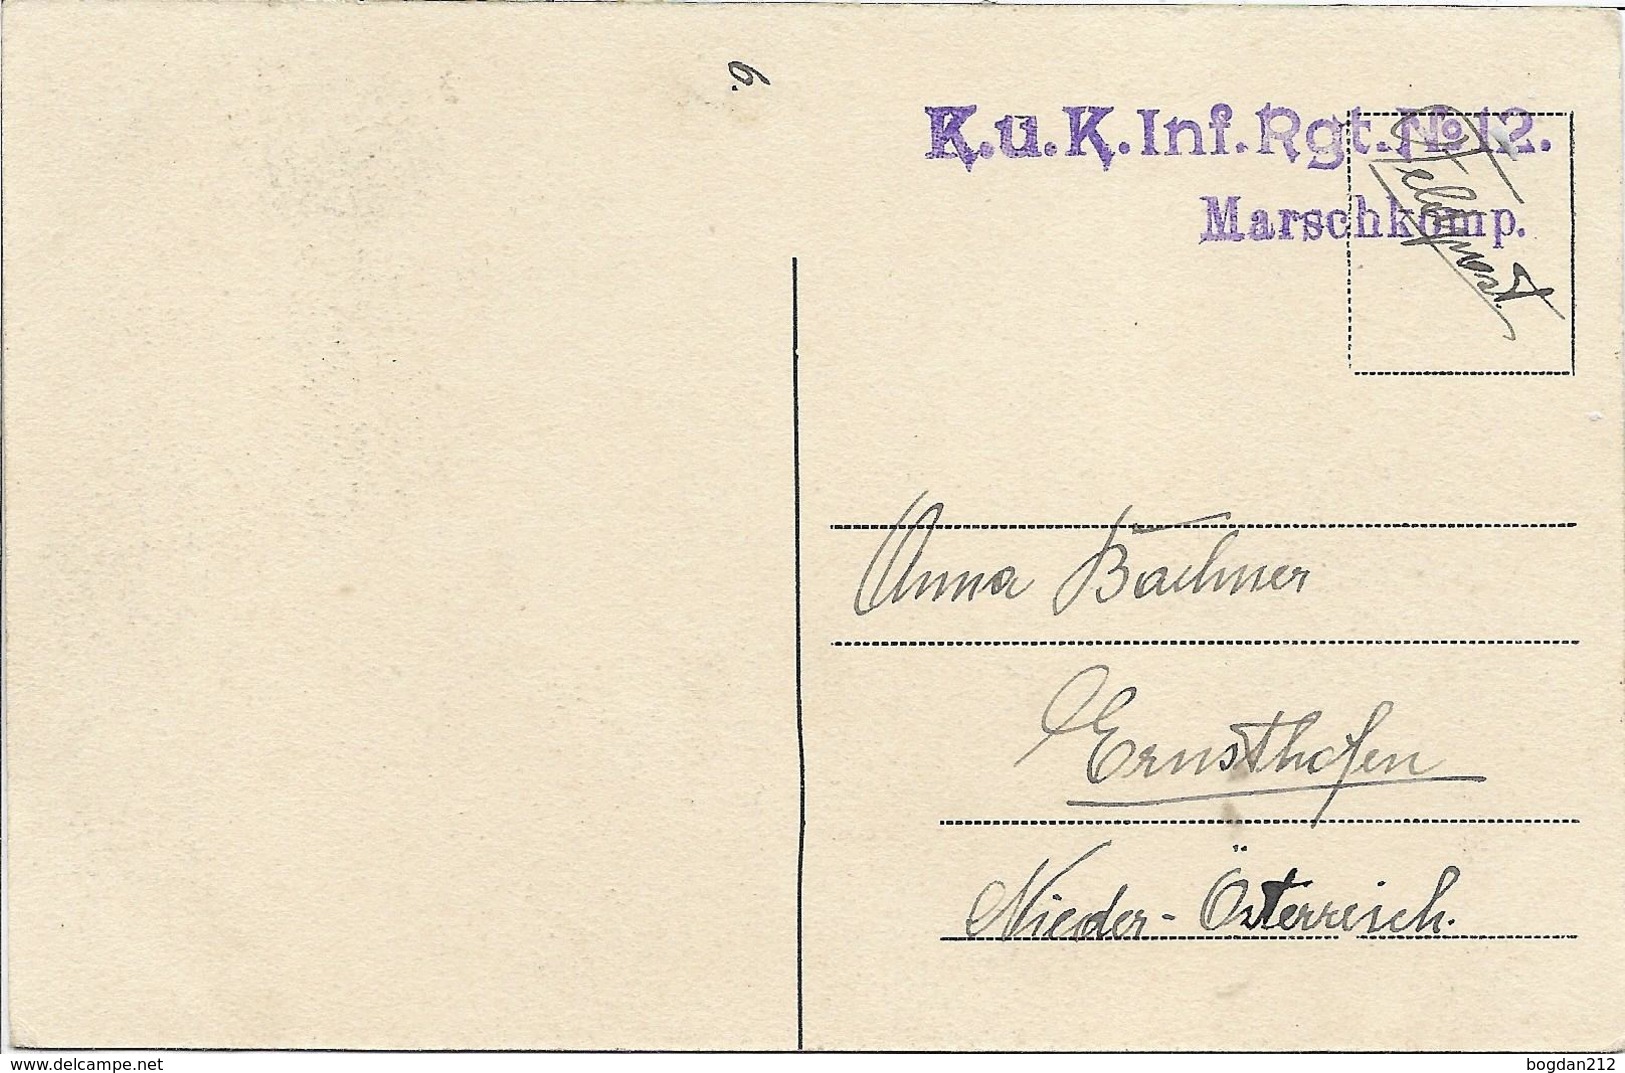 6.
K.u.K.Inf.Rgt.No 12.
Marschkomp.
Feldpost
Anna Bachner
Ernsthofen
Nieder-Österreich.
delcampe.net
bogdan212